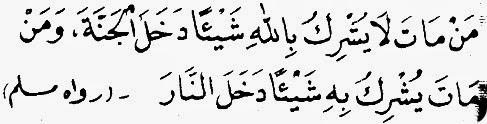 مَنْ مَاتَ لَا يُشْرِكُ بِاللهِ شَيْئًا دَخَلَ الْجَنَّةَ، وَمَنْ
مَاتَ يُشْرِكُ بِهِ شَيْئًا دَخَلَ النَّارَ - (رواه مسلم)